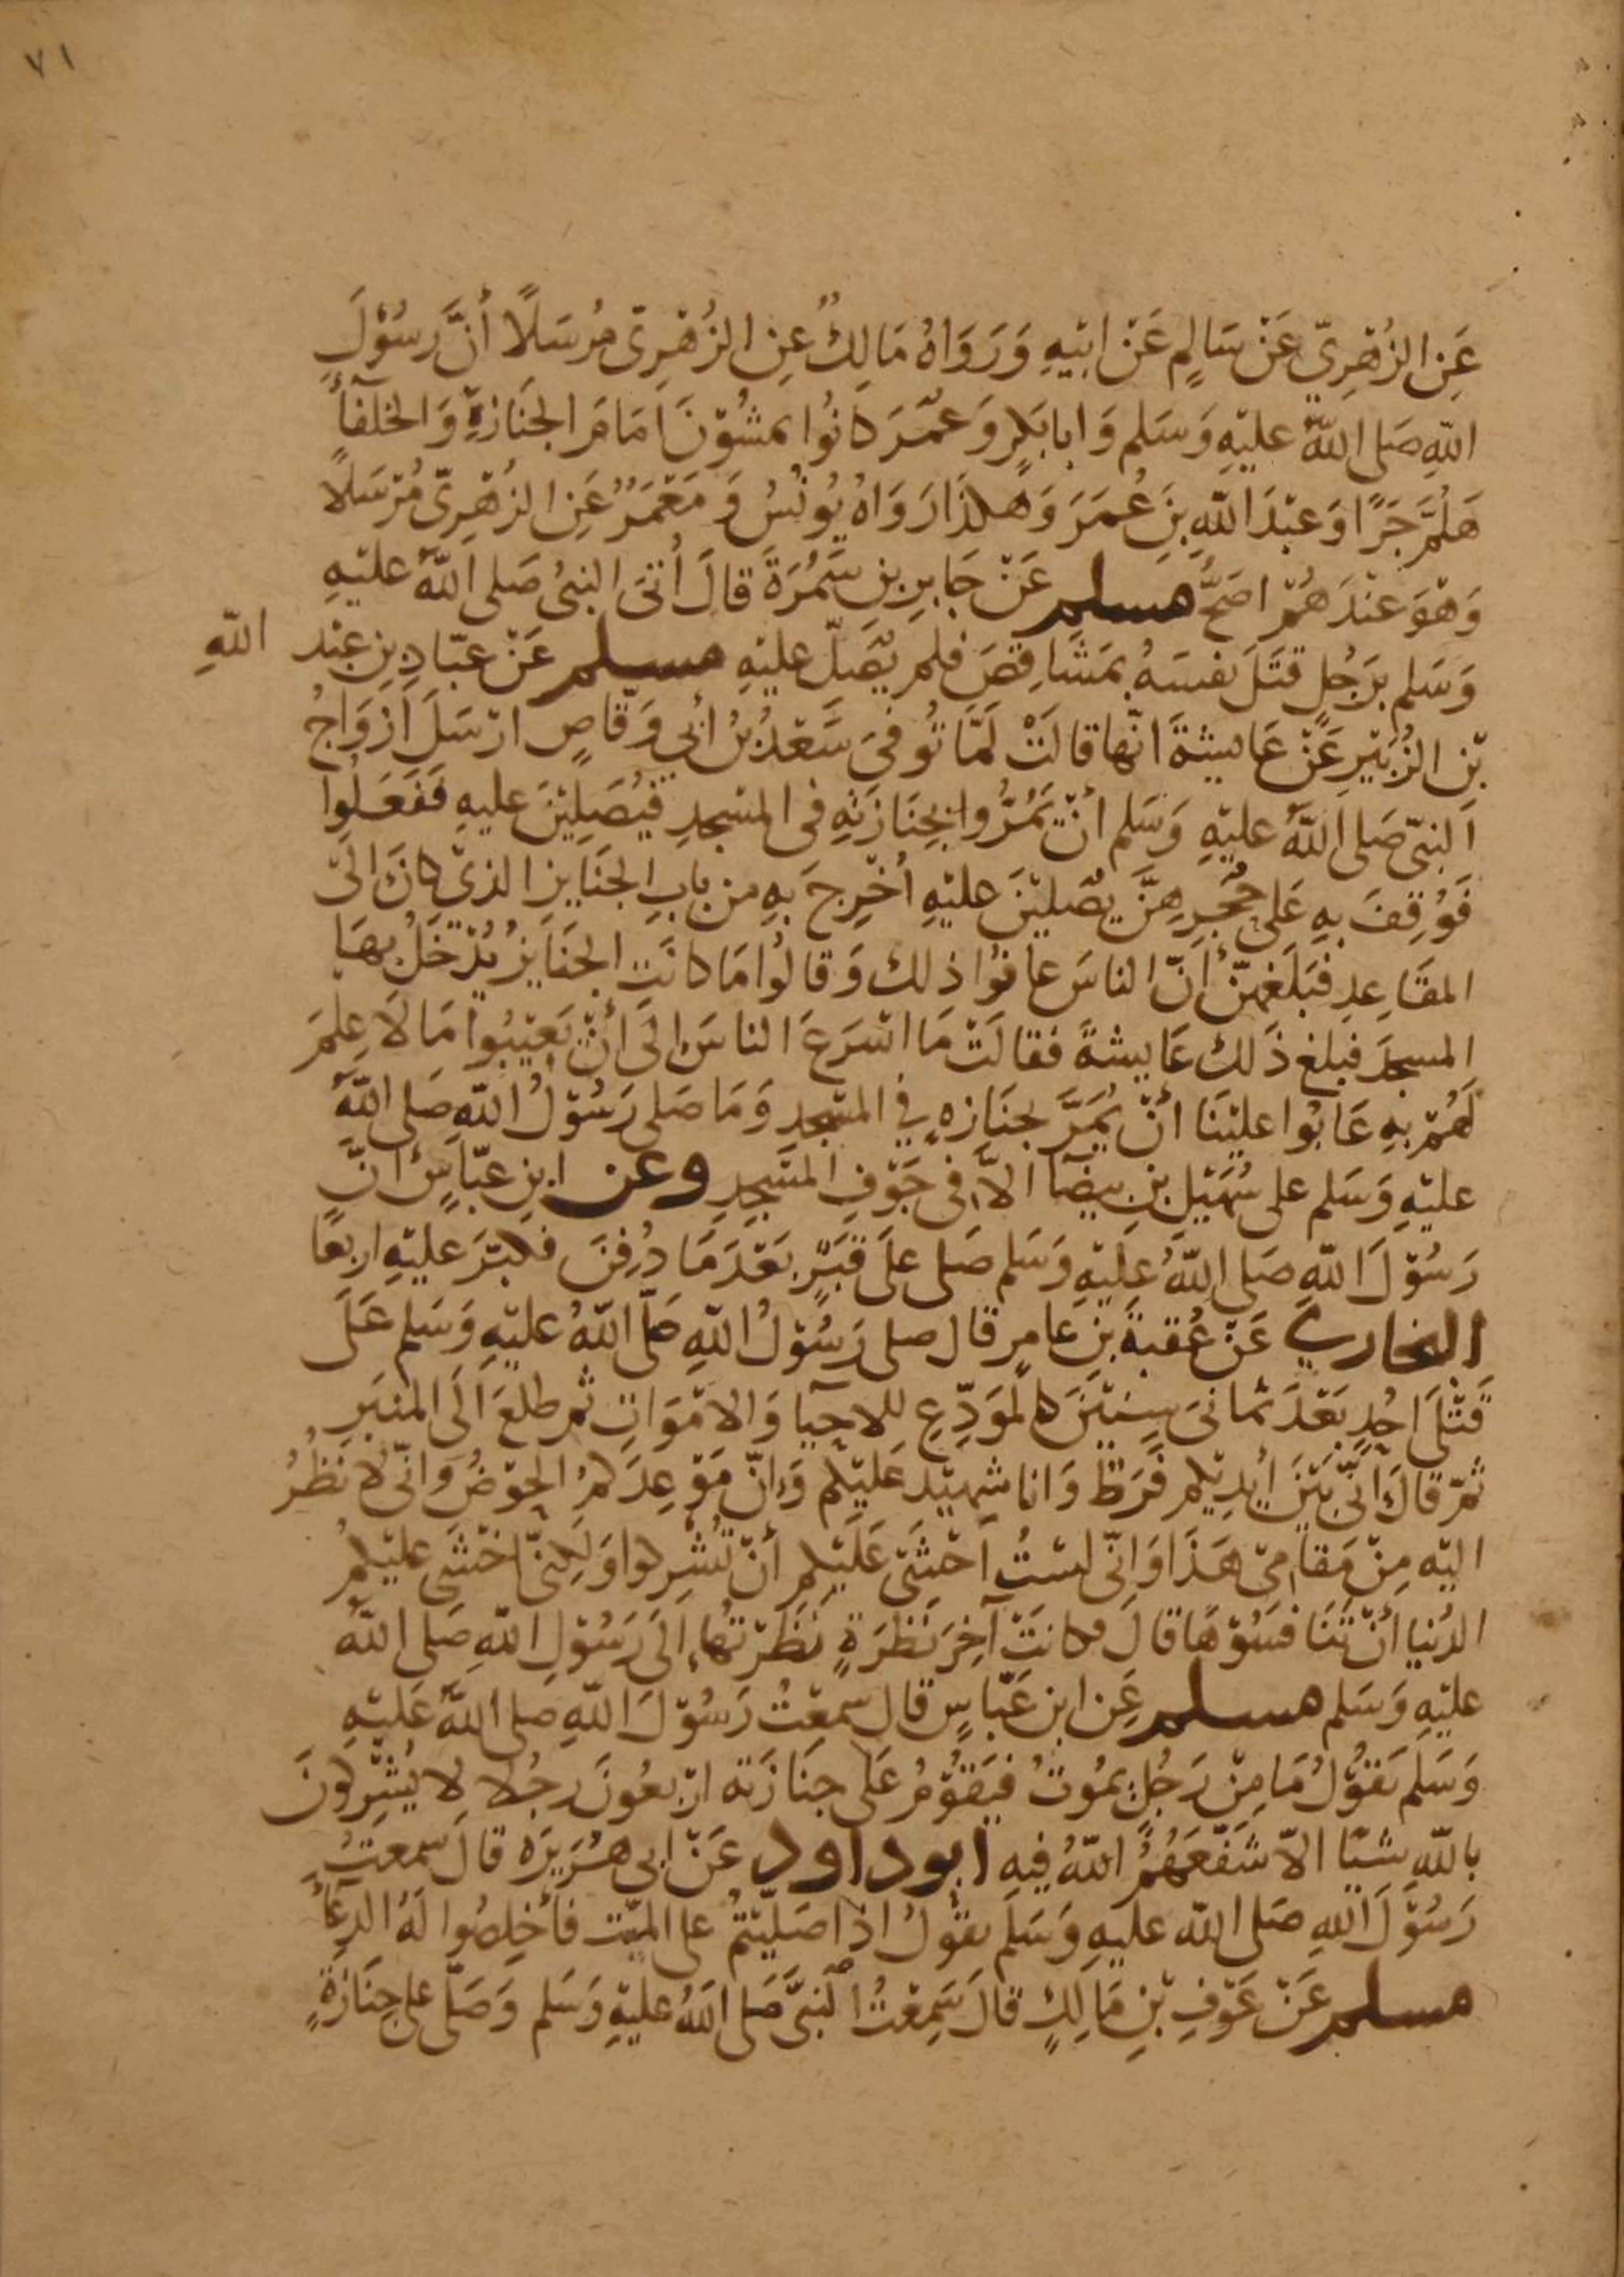 ٧١
عَنِ الزُهْرِيّ عَنْ سَالِمٍ عَنْ ابَيْهِ وَرَوَاهُ مَالِكٌ عِن الزُهْرِىّ مُرسَلاً أنَّ رسُوْلَ
اللهِ صَلى اللهُ عليْهِ وَسَلم وَابابَكرٍ وَعمَرَ كانُوا يمشُوْنَ اَمَامَ الجَنَازةِ وَالخلَفآءُ
هَلُمَّ جَرًا وَعبْدَ اللهِ بنِ عُمَرَ وَهكذَا رَوَاهُ يُونُسُ وَ مَعْمَرٌ عَنِ الزهْرِىّ مُرْسَلاً
وَهْوَ عنْدَهُمْ اصَحُّ مسلم عَنْ جَابرِ بنِ سَمُرَةَ قالَ أُتىَ النبىُ صَلى اللهُ عليْهِ
وَسَلم برَجُلٍ قتَلَ نفسَهُ بمَشَاقِصَ فلم يُصَلّ عليْهِ مسلم عَنْ عبّادِ بنِ عبْد اللهِ
بْنِ الزُبَيْرِ عَنْ عَايشةَ انّها قالَتْ لَمَّا تُوفىَ سَعْدُ بْنُ أبي وَقّاصٍ ارْسَلَ أزْوَاجُ
النبىّ صَلى اللهُ عليْهِ وَسَلم أنْ يَمُرُّوا بجنَازَتهِ فى المسْجدِ فيُصَلِيْنَ عليهِ فَفَعَلُوا
فَوُقِفَ بهِ عَلى حُجَرِهِنَّ يُصَليْنَ عليْهِ أُخْرِجَ بهِ من بابِ الجَنَايزِ الذىْ كانَ الىَ
المقَاعِدِ فبَلَغهنّ أَنّ الناسَ عابُوْا ذلك وَقالُوا مَا كانَتِ الجَنَايزُ يُدْخَلُ بهَا
المسجدَ فبلغ ذَلك عَايشةَ فقالَتْ مَا اسْرَعَ الناسَ الىَ أنْ يَعيْبُوا مَا لاَ عِلمَ
لَهُمْ بهِ عَابُوا عليْنَا أنْ يُمَرَّ بجنَازهٍ في المسْجدِ وَمَا صَلى رَسُوْلُ اللهِ صَلى اللهُ
عليْهِ وَسَلم على سُهَيْلِ بنِ بيضَآ الاَّ فى جَوْفِ المسْجِدِ وعن ابنِ عبّاسٍ انّ
رَسُوْلَ اللهِ صَلى اللهُ عليْهِ وَسَلم صَلى علَى قبْرٍ بَعْدَ مَا دُفِنَ فكبّرَ عليْهِ اربعًا
البخاري عَنْ عُقبةَ بنِ عَامرٍ قال صلى رَسُوْلُ اللهِ صَلَّى اللهُ عليْهِ وَسَلم عَلَى
قَتْلَى اُحُدٍ بَعْدَ ثمانىَ سِنيْنَ كالموَدّعِ للاحيآ وَالامْوَاتِ ثم طلعَ الَى المنبَرِ
ثمّ قالَ انّى بَيْنَ أيْدِيْكم فَرَط وَانا شهيْد عَليْكم وَانّ مَوْعِدَكمُ الحوْضُ وَانّى لانظُرُ
اليْه مِنْ مَقامِىْ هَذَا وَانّى لسْتُ أخشَى عَليْكم أنْ تُشْرِكوا وَلكِنّى اخْشَى عليْكمُ
الدُنيا أنْ تَنَافسُوْهَا قالَ فكانتْ آخِرَ نَظرَةٍ نَظَرْتُها الىَ رَسُوْلِ اللهِ صَلى اللهُ
عليْهِ وَسَلم مسلم عَنِ ابن عَبّاسٍ قال سمِعْتُ رَسُوْلَ اللهِ صلى اللهُ عَليْهِ
وَسَلم يَقوُلُ مَا مِنْ رَجُلٍ يمُوتُ فيَقوْمُ عَلى جنَازَته ارْبعُونَ رجُلا لا يُشْرِكونَ
باللهِ شيْئًا الاّ شَفّعَهُمُ اللهُ فيهِ ابو داود عَنْ ابي هُرَيرَه قالَ سمعتُ
رَسُوْلَ اللهِ صَلى الله عليهِ وَسَلم يقوْلُ اذَا صَليْتمْ على الميّت فأخلِصُوا لَهُ الدعآءُ
مسلم عَنْ عَوْفِ بْنِ مَالِكٍ قالَ سَمِعْتُ النبىَّ صَلى اللهُ عليْهِ وَسَلم وَصَلّى على جنَازَةٍ